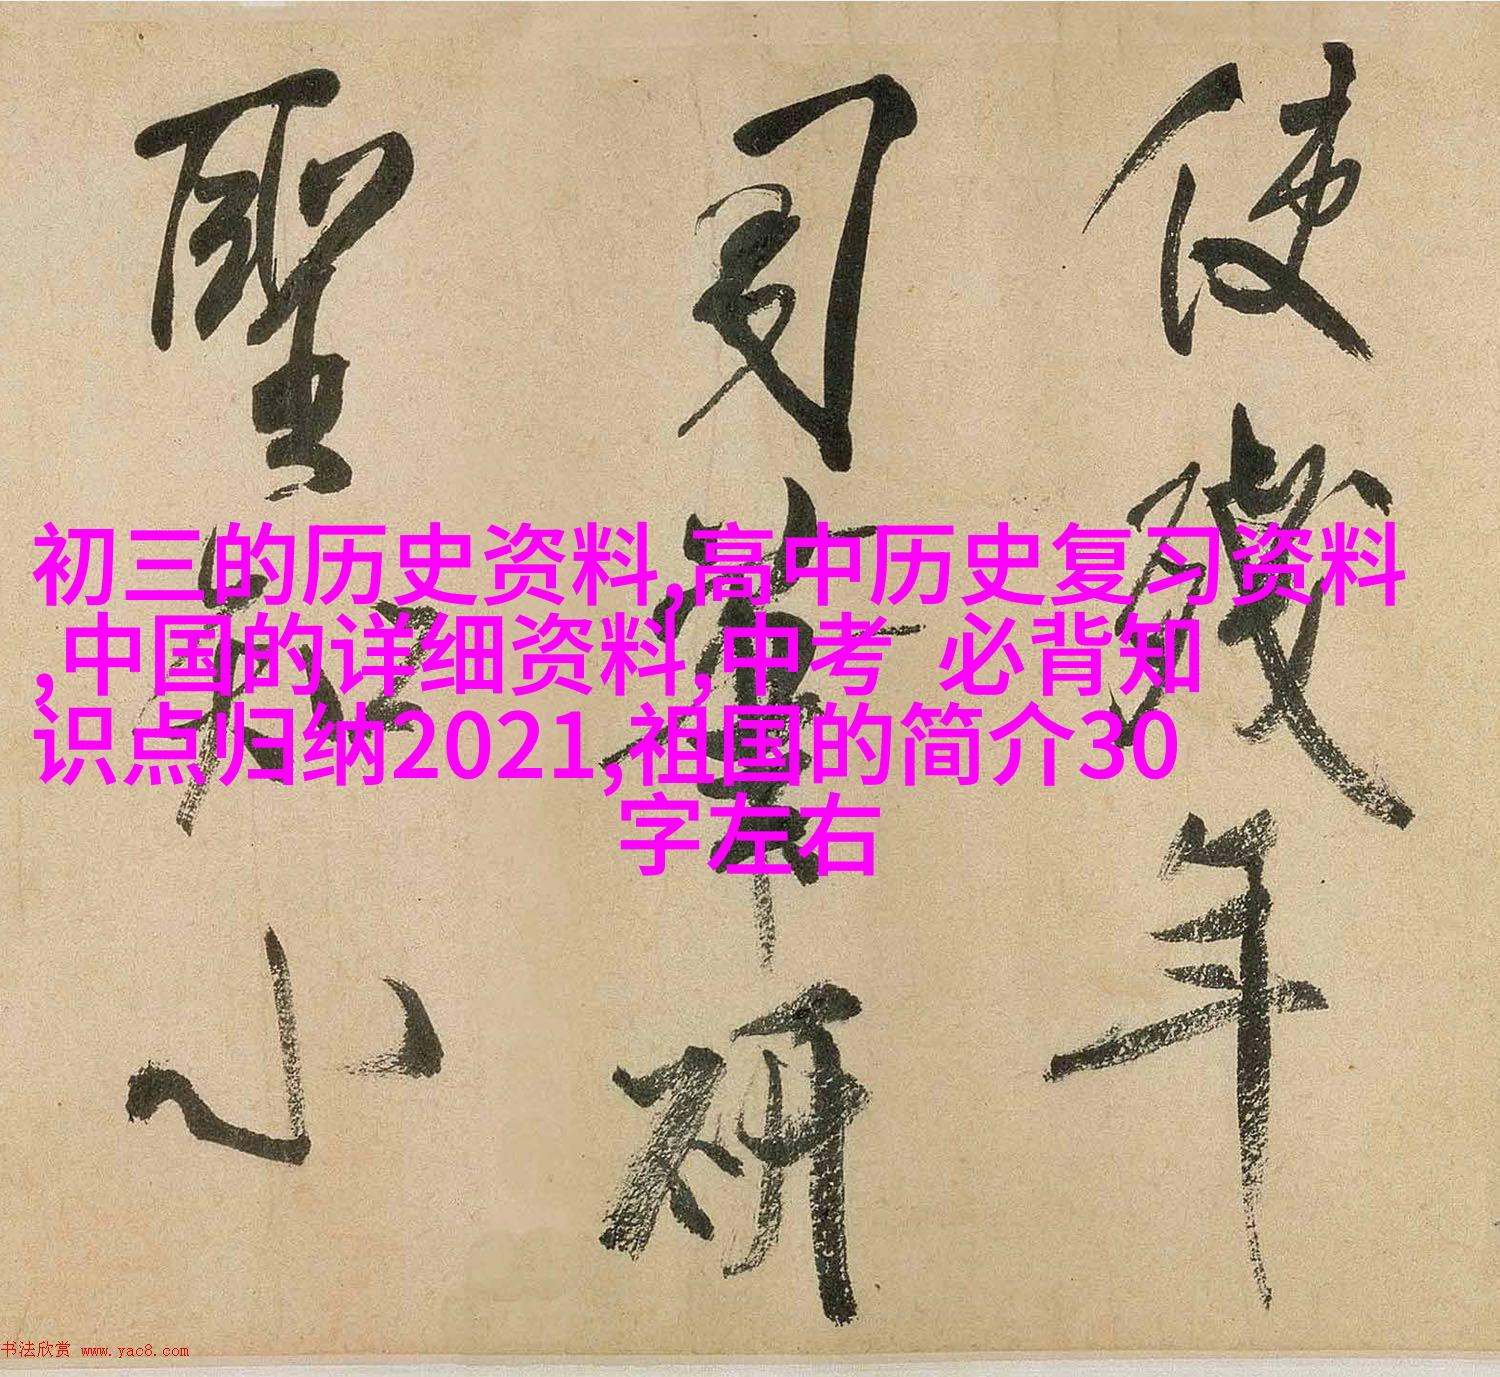 使残年
司笔研
圣知小
初三的历史资料,高中历史复习资料
,中国的详细资料,中考 必背知
识点归纳2021,祖国的简介30
字左右
书法欣赏 www.yac8.com